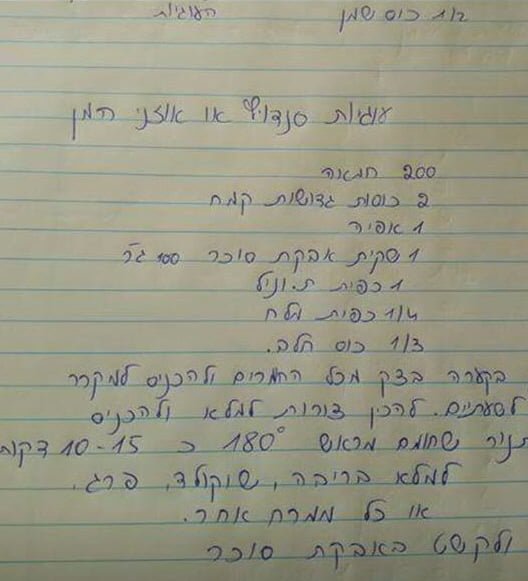 1/2 כוס שמן העוגיות
עוגיות סנדויץ או אוזני המן
200 חמאה
2 כוסות גדושות קמח
1 אפיה
1 שקית אבקת סוכר 100 גר'
1 כפית ת. וניל
1/4 כפית מלח
1/3 כוס חלב.
בקערה בצק מכל החמרים ולהכניס למקרר
לשעתיים. להכין צורות למלא ולהכניס
תנור שחומם מראש 180° כ 10-15 דקות
למלא בריבה, שוקולד, פרג.
או כל ממרח אחר.
ולקשט באבקת סוכר